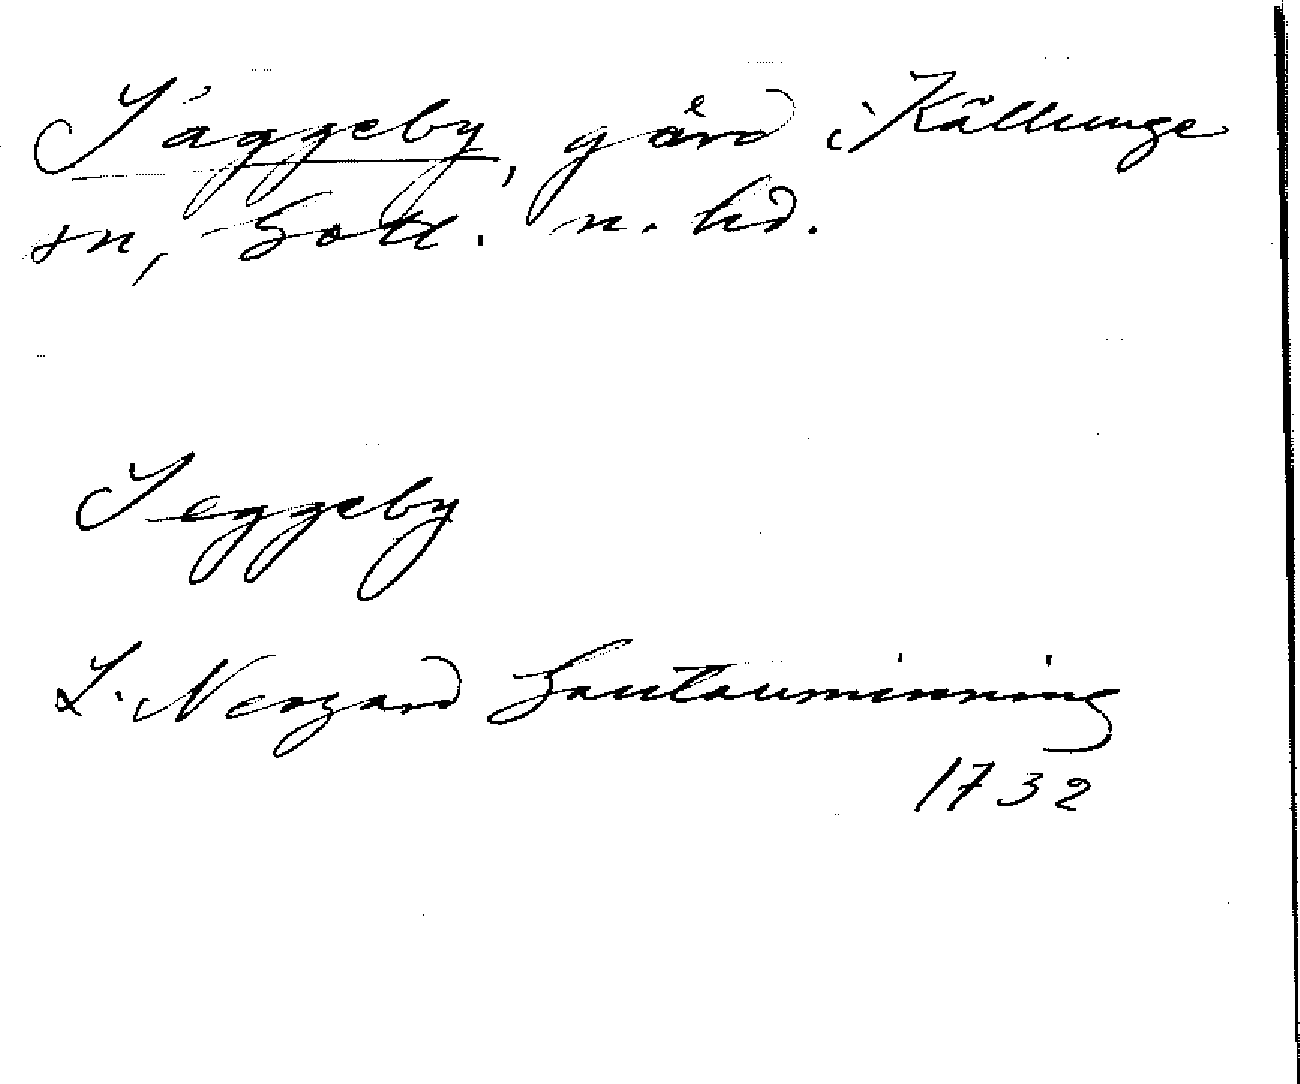 Säggeby, gård i Källunge
sn, Gotl. n. hd.
Seggeby
L. Neogard Gautauminning
1732